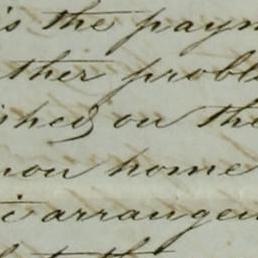 is the paym
ther probl
ished on the
non home
c arrangem